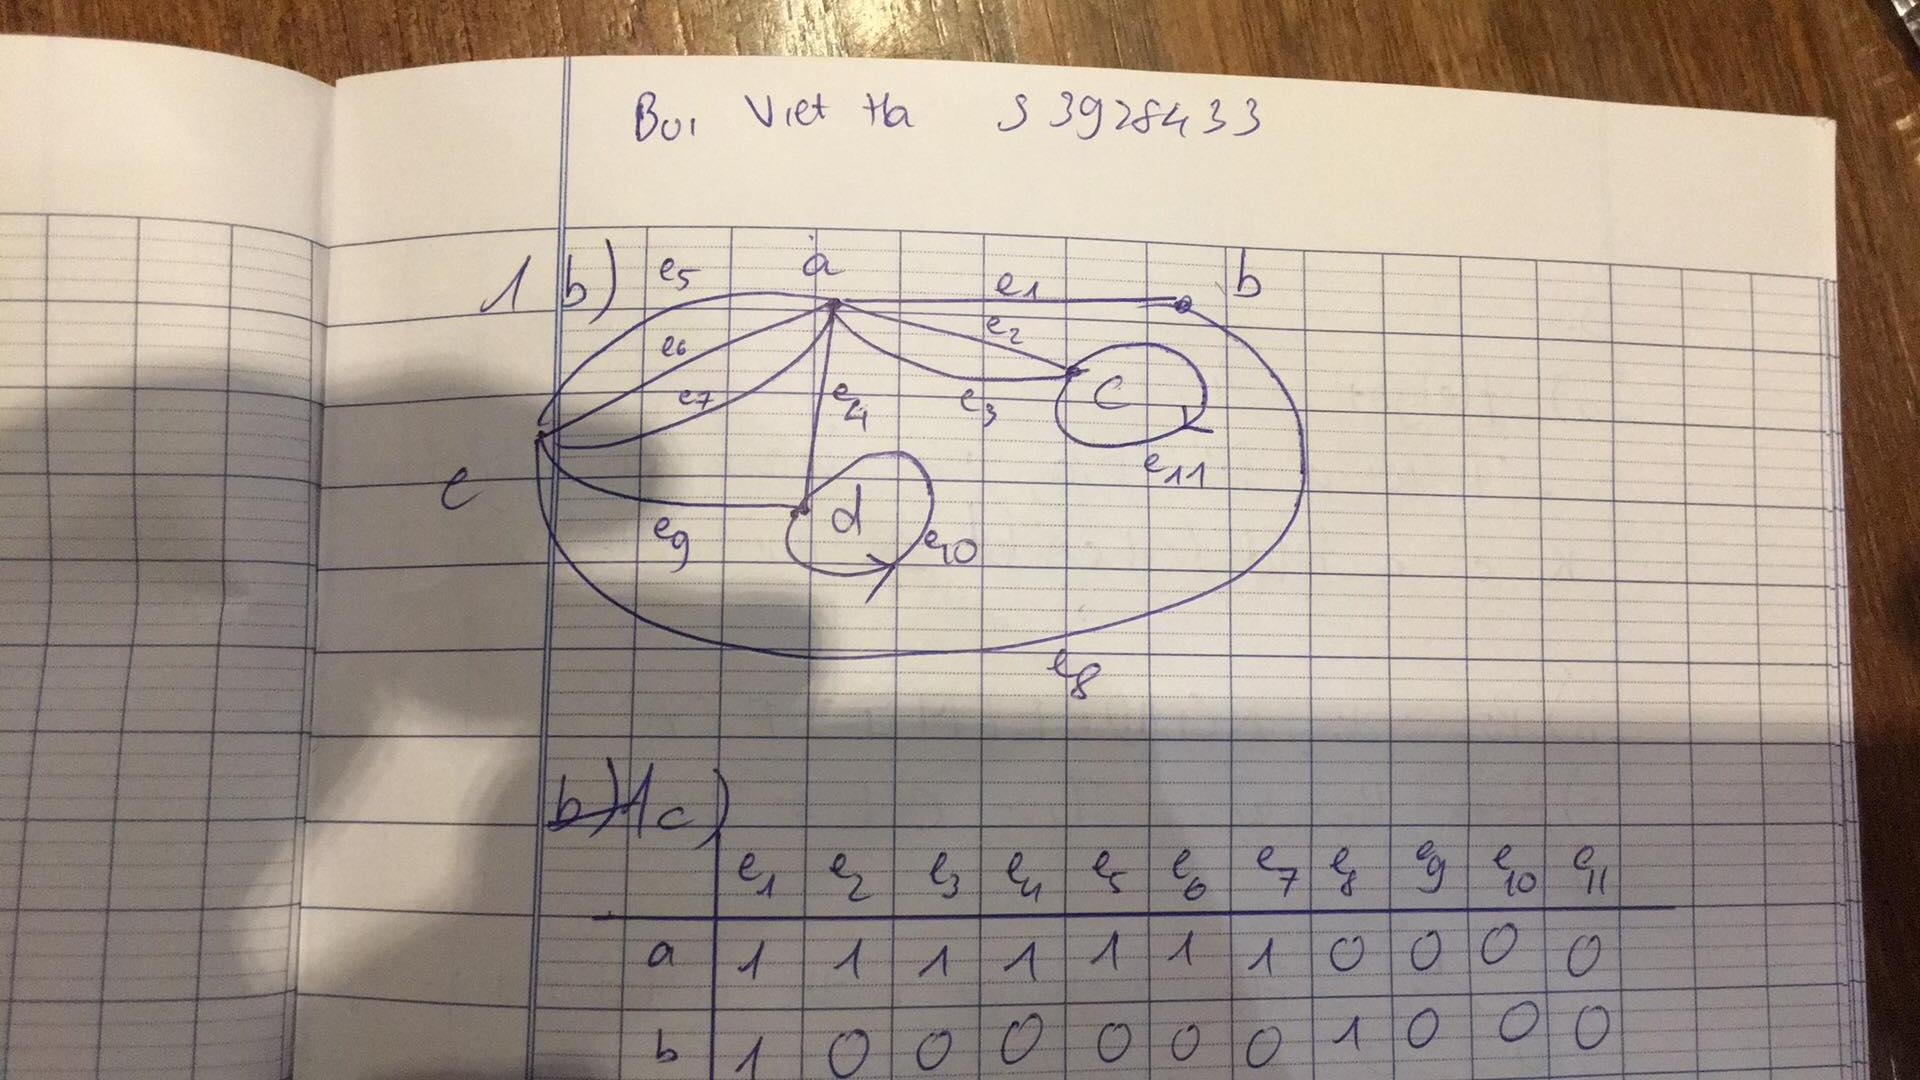 Bui Viet Ha S3928433
1 b) e5 a e1 b
e6 e2
e7 e4 e3 c
e e11
e9 d e10
e8
b) 1c)
e1 e2 e3 e4 e5 e6 e7 e8 e9 e10 e11
a 1 1 1 1 1 1 1 0 0 0 0
b 1 0 0 0 0 0 0 1 0 0 0